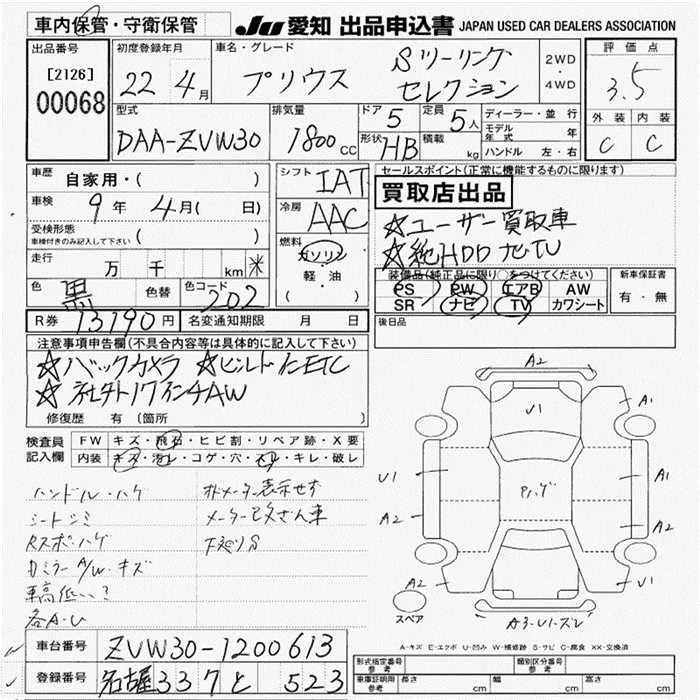 車内保管・守衛保管
JU 愛知 出品申込書 JAPAN USED CAR DEALERS ASSOCIATION
出品番号
[2126]
00068
初度登録年月
22年4月
車名・グレード
プリウス Sツーリングセレクション
2WD・4WD
評価点
3.5
外装 内装
C C
型式
DAA-ZVW30
排気量
1800cc
ドア 5
形状 HB
定員 5人
積載 kg
ディーラー・並行
モデル年式 年
ハンドル 左・右
車歴 自家用・( )
車検 9年 4月( 日)
受検形態
車検付きのみ記入して下さい ( )
走行 万 千 km
色 黒 色替 色コード 202
シフト IAT
冷房 AAC
燃料
ガソリン
軽・油
( )
R券 13190円 名変通知期限 月 日
セールスポイント(正常に機能するものに限ります)
買取店出品
☆ユーザー買取車
☆純HDDナビTV
装備品(純正品に限り○をつけてください)
PS PW エアB AW
SR ナビ TV カワシート
新車保証書
有・無
後日品
注意事項申告欄(不具合内容等は具体的に記入して下さい)
☆バックカメラ ☆ビルトインETC
☆社外17インチAW
修復歴 有(箇所 )
検査員記入欄
FW キズ・飛石・ヒビ割・リペア跡・X要
内装 キズ・汚レ・コゲ・穴・スレ・キレ・破レ
ハンドル・ハゲ
シートシミ
Rスポ・ハゲ
ミラーA/W・キズ
車高低
各A・U
オドメーター表示せず
メーター改ざん車
A2
U1
A1
U1
A1
A2
A2
A2
U1
スペア
A-キズ E-エクボ U-凹み W-補修跡 S-サビ C-腐食 XX-交換済
車台番号 ZVW30-1200613
登録番号 名古屋 337 と 523
形式指定番号参考
類別区分番号参考
車庫証明用参考 長さ cm 幅 cm 高さ cm